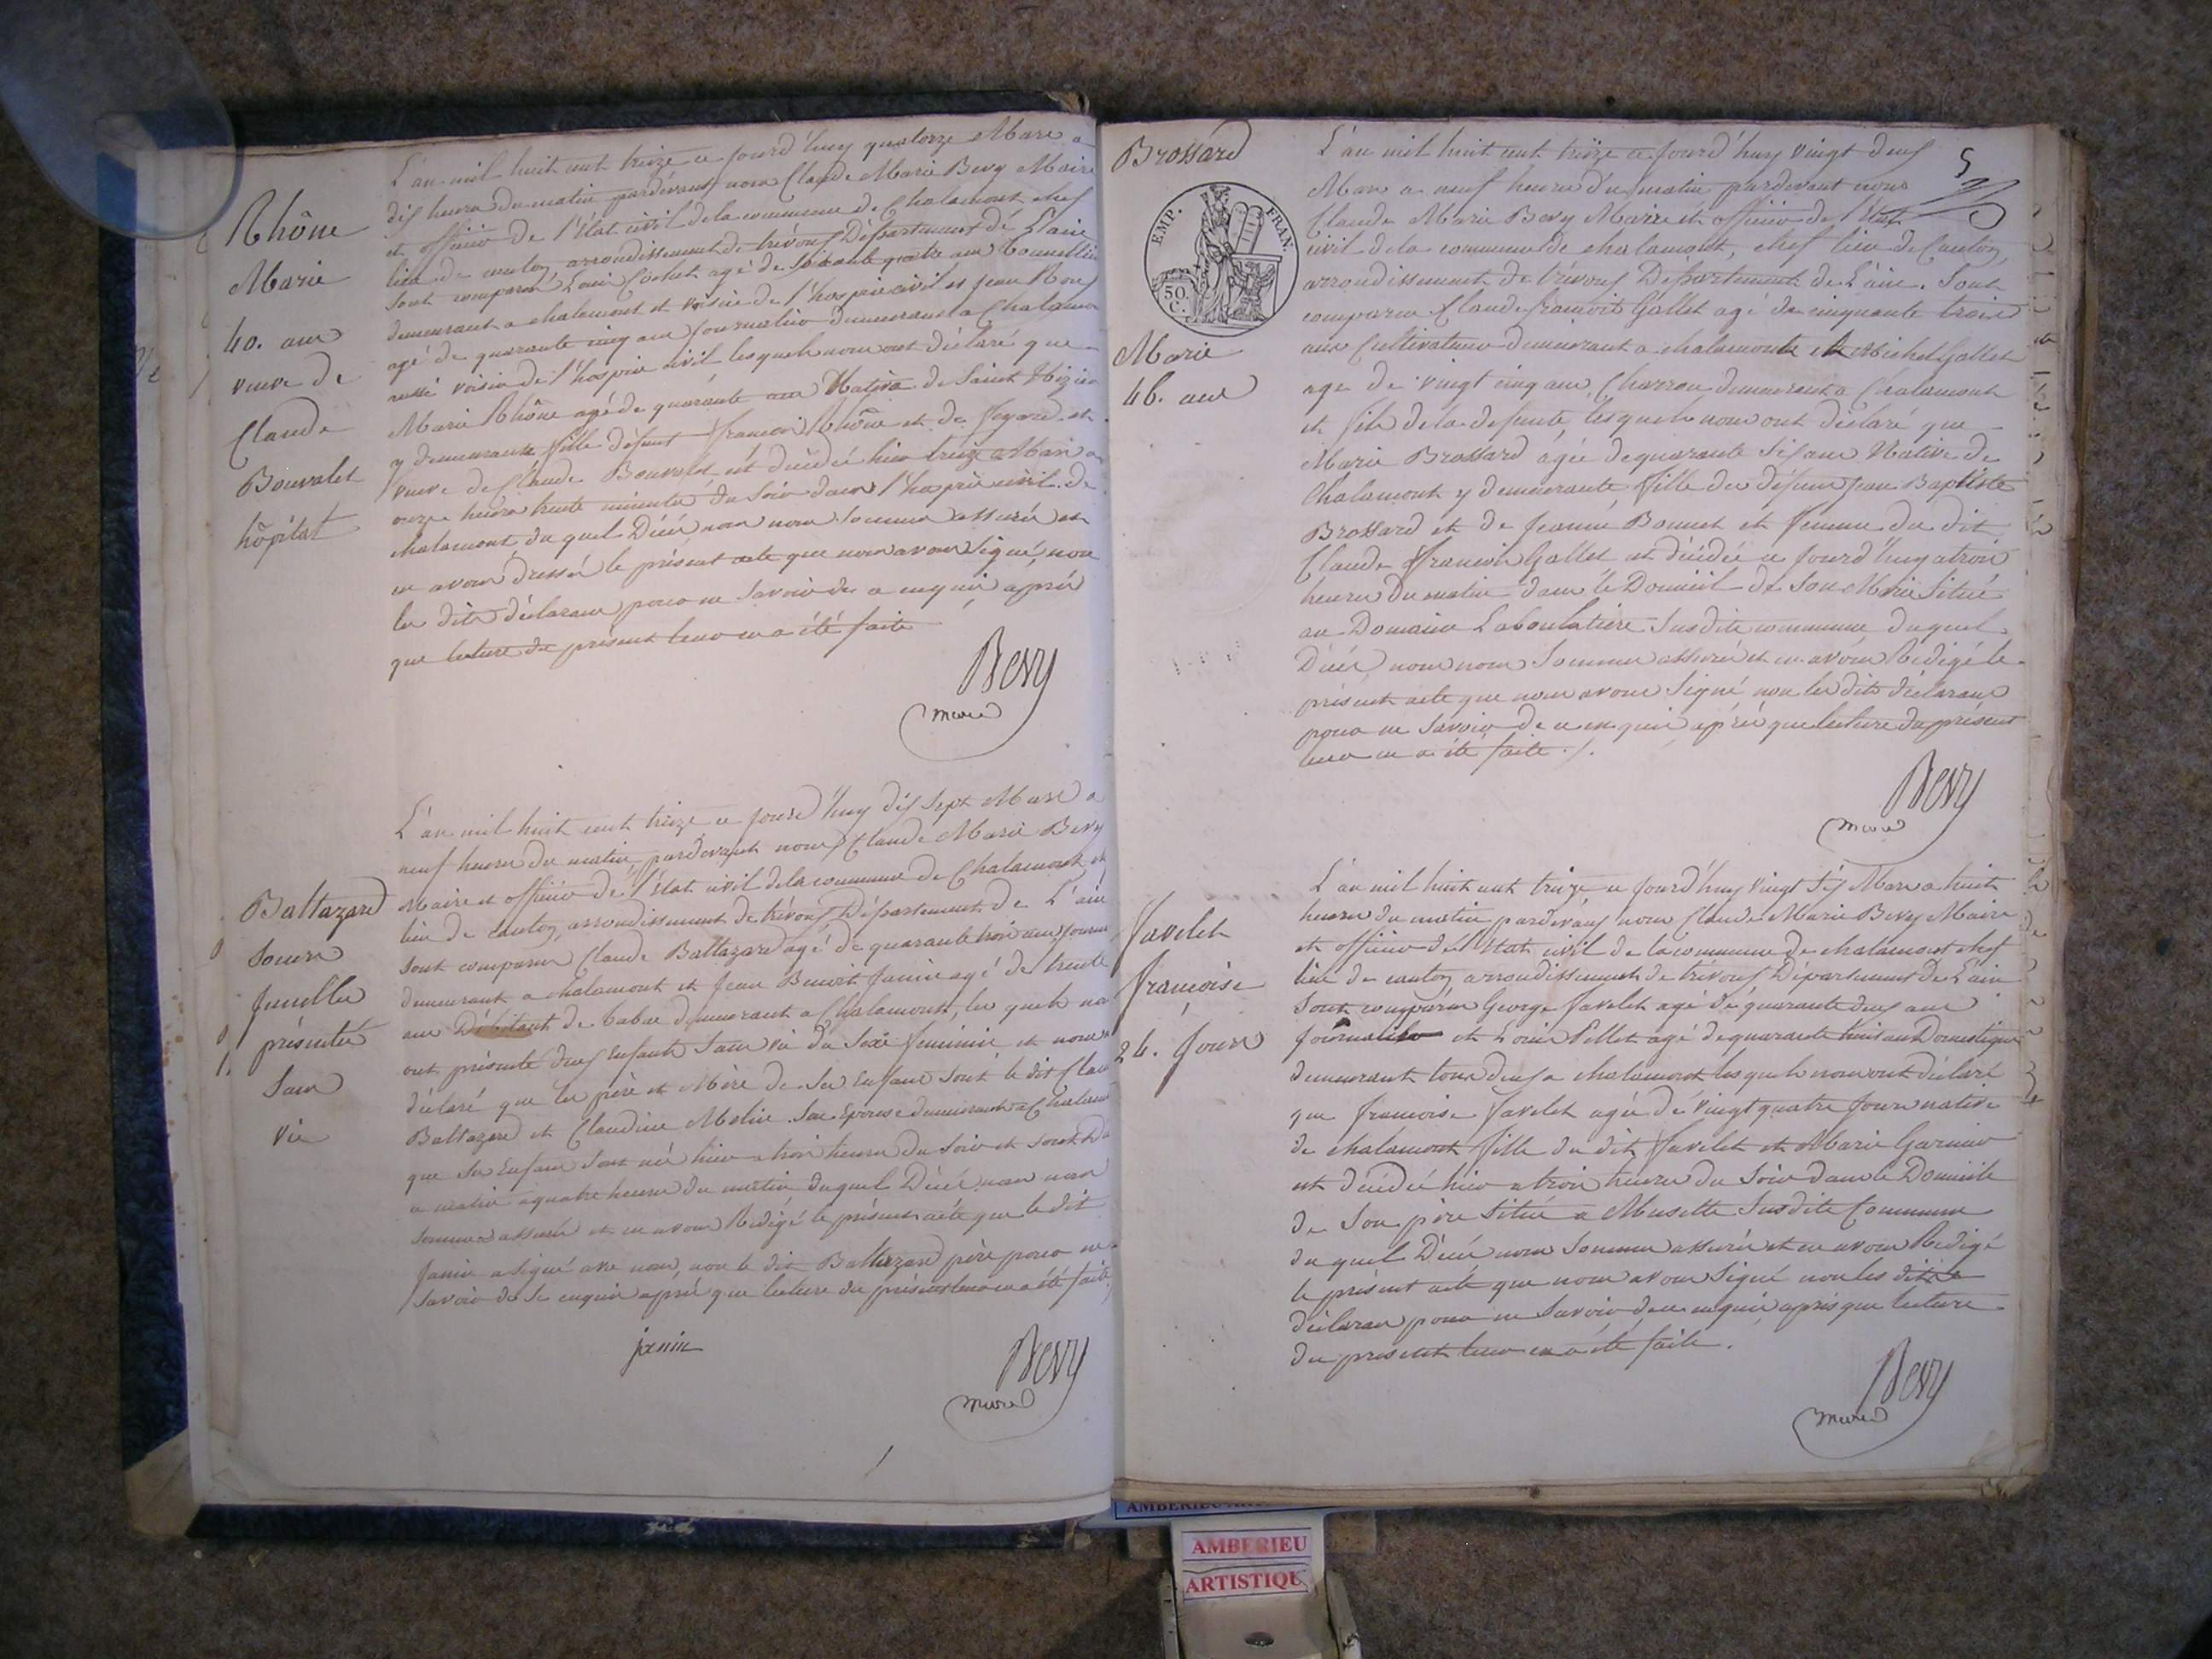 Rhône
Marie
40. ans
veuve de
Claude
Bouvalet
hôpital
L'an mil huit cent treize ce jourd'huy quatorze Mars a
dix heures du matin pardevant nous Claude Marie Bevy Maire
et officier de l'Etat civil de la commune de Chalamont chef
lieu de canton, arrondissement de trévoux Département de L'ain
sont comparus Louis Cochet agé de soixante quatre ans
demeurant a chalamont et voisin de l'hospice civil et jean
agé de quarante cinq ans journalier demeurant a Chalamon
aussi voisin de l'hospice civil lesquels nous ont déclaré que
Marie Rhône agé de quarante ans Native de Saint Nizier
y demeurante fille défunt françois Rhône et de et
veuve de Claude Bouvalet est décédée hier treize Mars a
onze heures trente minutes du soir dans l'hospice civil de
chalamont du quel Décés nous nous sommes assurés et
en avons dressé le présent acte que nous avons signé, non
les dits déclarans pour ne savoir de ce enquis après
que lecture du présent leur en a été faite
Bevy
maire
Baltazard
Soeurs
jumelles
présentés
Sans
vie
L'an mil huit cent treize ce jourd'huy dix sept Mars a
neuf heures du matin, pardevant nous Claude Marie Bevy
Maire et officier de l'Etat civil de la commune de Chalamont
lieu de canton, arrondissement de trévoux Département de L'ain
sont comparus Claude Baltazard agé de quarante trois ans
demeurant a chalamont et jean Benoit janin agé de trente
ans Débitant de tabac demeurant a Chalamont, les quels
ont présenté deux Enfants sans vie du Sexe féminin, et nous
déclaré que les père et Mère de ses Enfans sont le dit
Baltazard et Claudine Melin son Epouse demeurant a
que ses Enfans sont nés hier a trois heures du soir et sont
ce matin a quatre heures du matin duquel Décés nous nous
sommes assurés et en avons Redigé le présent acte que le dit
janin a signé avec nous, non le dit Baltazard père pour ne
savoir de ce enquis après que lecture du présent leur en a été faite
janin
Bevy
maire
Brossard
EMP. FRAN.
50.
C.
Marie
46. ans
5
L'an mil huit cent treize ce jourd'huy vingt deux
Mars a neuf heures du matin pardevant nous
Claude Marie Bevy Maire et officier de l'Etat
civil de la commune de chalamont, chef lieu de Canton,
arrondissement de trévoux Département de L'ain. Sont
comparus Claude françois Gallet agé de cinquante trois
ans Cultivateur demeurant a chalamont et Michel Gallet
age de vingt cinq ans, Charron demeurant a Chalamont
et fils de la defunte, lesquels nous ont déclaré que
Marie Brossard agée de quarante six ans Native de
Chalamont y demeurante fille des défunts jean Baptiste
Brossard et de jeanne Bonnet et femme du dit
Claude françois Gallet est décédée ce jourd'huy a trois
heures du matin dans le Domicil de son Marie Situé
au Domaine Laboulatiere susdite commune duquel
Décés nous nous sommes assurés et en avons Redigé le
présent acte que nous avons signé, non les dits déclarans
pour ne savoir de ce enquis après que lecture du présent
leur en a été faite ./.
Bevy
maire
Javelet
françoise
24. jours
L'an mil huit cent treize ce jourd'huy vingt six Mars a huit
heures du matin pardevant nous Claude Marie Bevy Maire
et officier de l'Etat civil de la commune de chalamont chef
lieu de canton arrondissement de trévoux Département de L'ain
sont comparus George Javelet agé de quarante deux ans
journalier et Louis Pellet agé de quarante huit ans Domestique
demeurant tous deux a chalamont lesquels nous ont déclaré
que françoise Javelet agée de vingt quatre jours native
de chalamont fille du dit Javelet et Marie Garnier
est décédée hier a trois heures du soir dans le Domicile
de son père situé a Musette susdite Commune
du quel Décés nous sommes assurés et en avons Redigé
le présent acte que nous avons signé non les dits
déclarans pour ne savoir de ce enquis après que lecture
du présent leur en a été faite.
Bevy
maire
AMBERIEU
AMBERIEU
ARTISTIQU